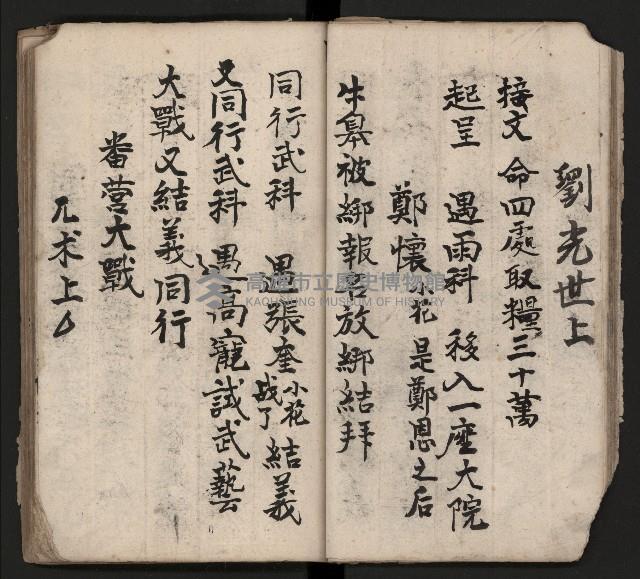 劉光世上
接文 命四處取糧三十萬
起呈 遇雨科 移入一座大院
鄭懷 花 是鄭恩之后
牛皐被綁報名放綁結拜
同行武科 遇張奎 小花 战了 結義
又同行武科 遇高寵試武藝
大戰又結義同行
番营大戰
兀术上
高雄市立歷史博物館
KAOHSIUNG MUSEUM OF HISTORY